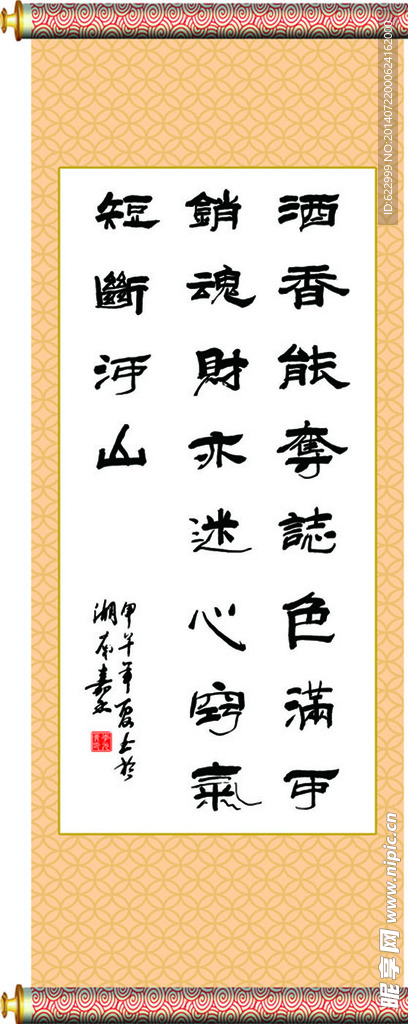 酒香能奪誌色滿可
銷魂財亦迷心竅氣
短斷河山
甲午年夏於
湖南嘉禾
ID:622999 NO:20140722000624162000
昵享网 www.nipic.cn